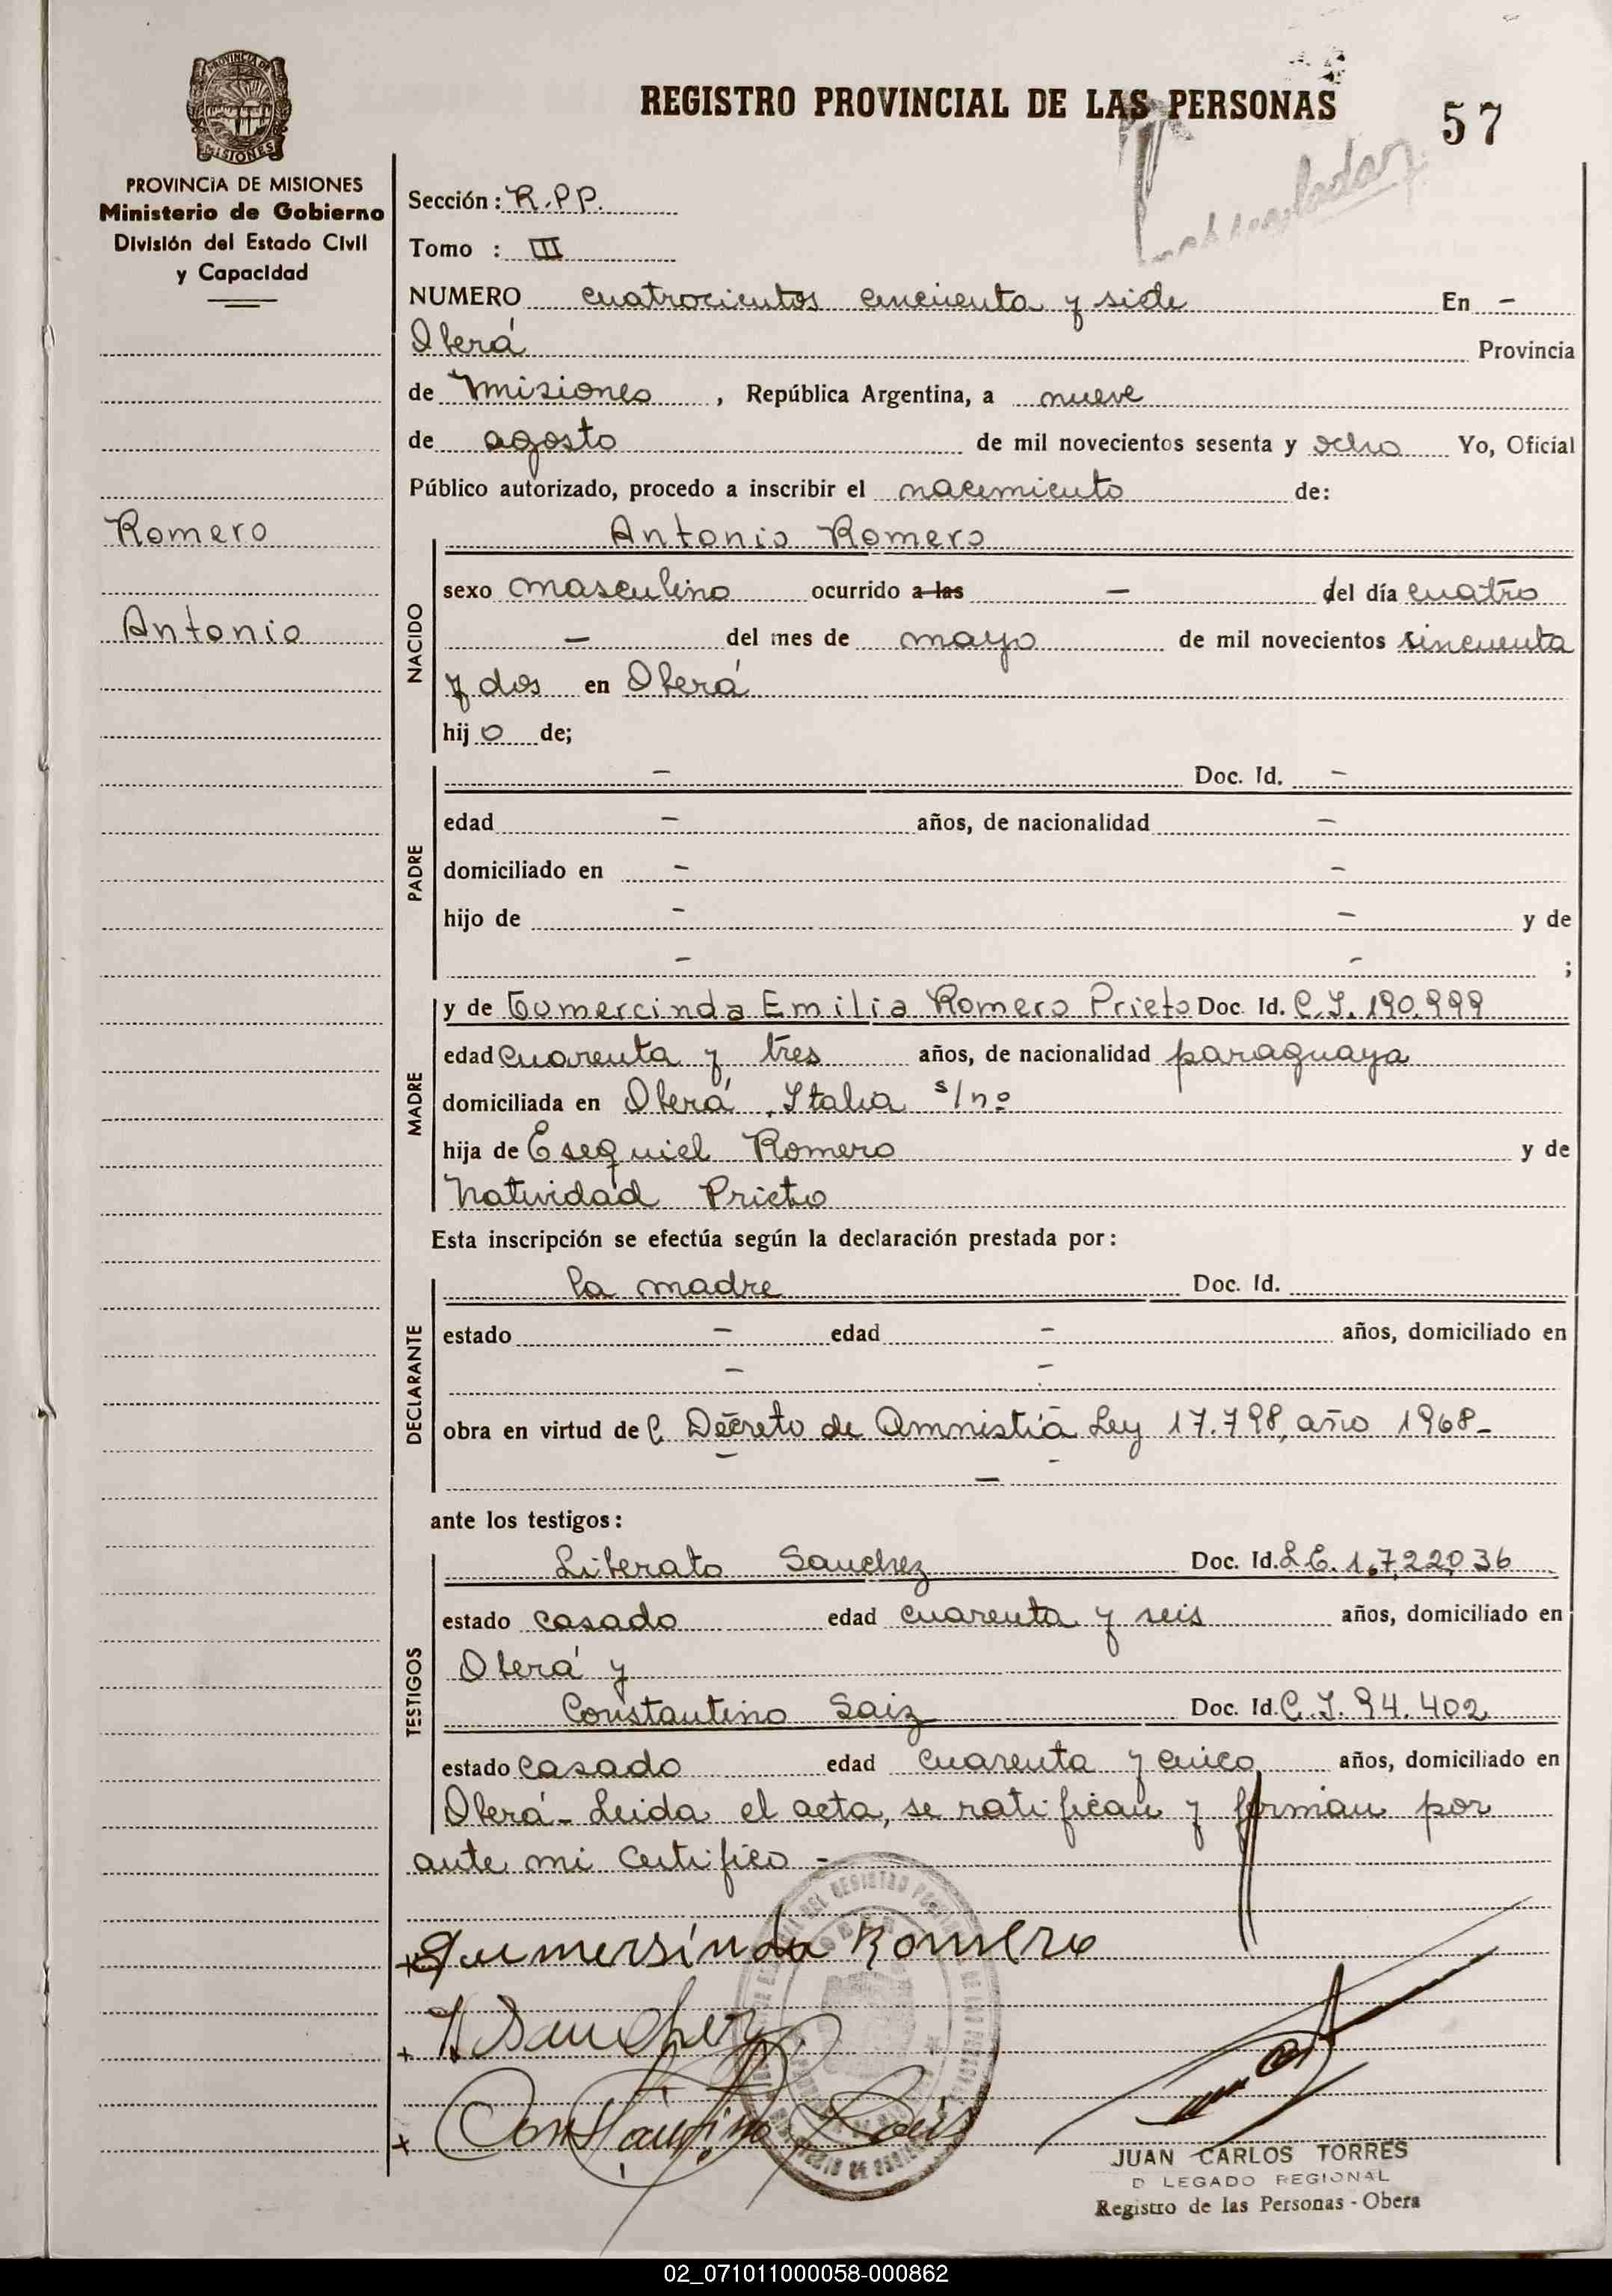 REGISTRO PROVINCIAL DE LAS PERSONAS
57
PROVINCIA DE
MISIONES
PROVINCIA DE MISIONES
Ministerio de Gobierno
División del Estado Civil
y Capacidad
Romero
Antonio
Sección: R.P.P.
Tomo : III
NUMERO cuatrocientos cincuenta y siete En -
Oberá Provincia
de Misiones, República Argentina, a nueve
de agosto de mil novecientos sesenta y ocho Yo, Oficial
Público autorizado, procedo a inscribir el nacimiento de:
NACIDO
Antonio Romero
sexo masculino ocurrido a las - del día cuatro
- del mes de mayo de mil novecientos sincuenta
y dos en Oberá
hijo de;
PADRE
- Doc. Id. -
edad - años, de nacionalidad -
domiciliado en - -
hijo de - - y de
- - ;
MADRE
y de Gumercinda Emilia Romero Prieto Doc. Id. C.I. 190.999
edad cuarenta y tres años, de nacionalidad paraguaya
domiciliada en Oberá, Italia s/nº
hija de Esequiel Romero y de
Natividad Prieto
Esta inscripción se efectúa según la declaración prestada por:
DECLARANTE
la madre Doc. Id.
estado - edad - años, domiciliado en
- -
obra en virtud de Decreto de Amnistía Ley 17.798, año 1968-
-
ante los testigos:
TESTIGOS
Liberato Sanchez Doc. Id. L.E. 1.722.036
estado casado edad cuarenta y seis años, domiciliado en
Oberá y
Constantino Saiz Doc. Id. C.I. 94.402
estado casado edad cuarenta y cinco años, domiciliado en
Oberá - Leida el acta, se ratifican y firman por
ante mi certifico -
Gumersinda Romero
Sanchez
Constantino Saiz
JUAN CARLOS TORRES
D LEGADO REGIONAL
Registro de las Personas - Obera
02_071011000058-000862